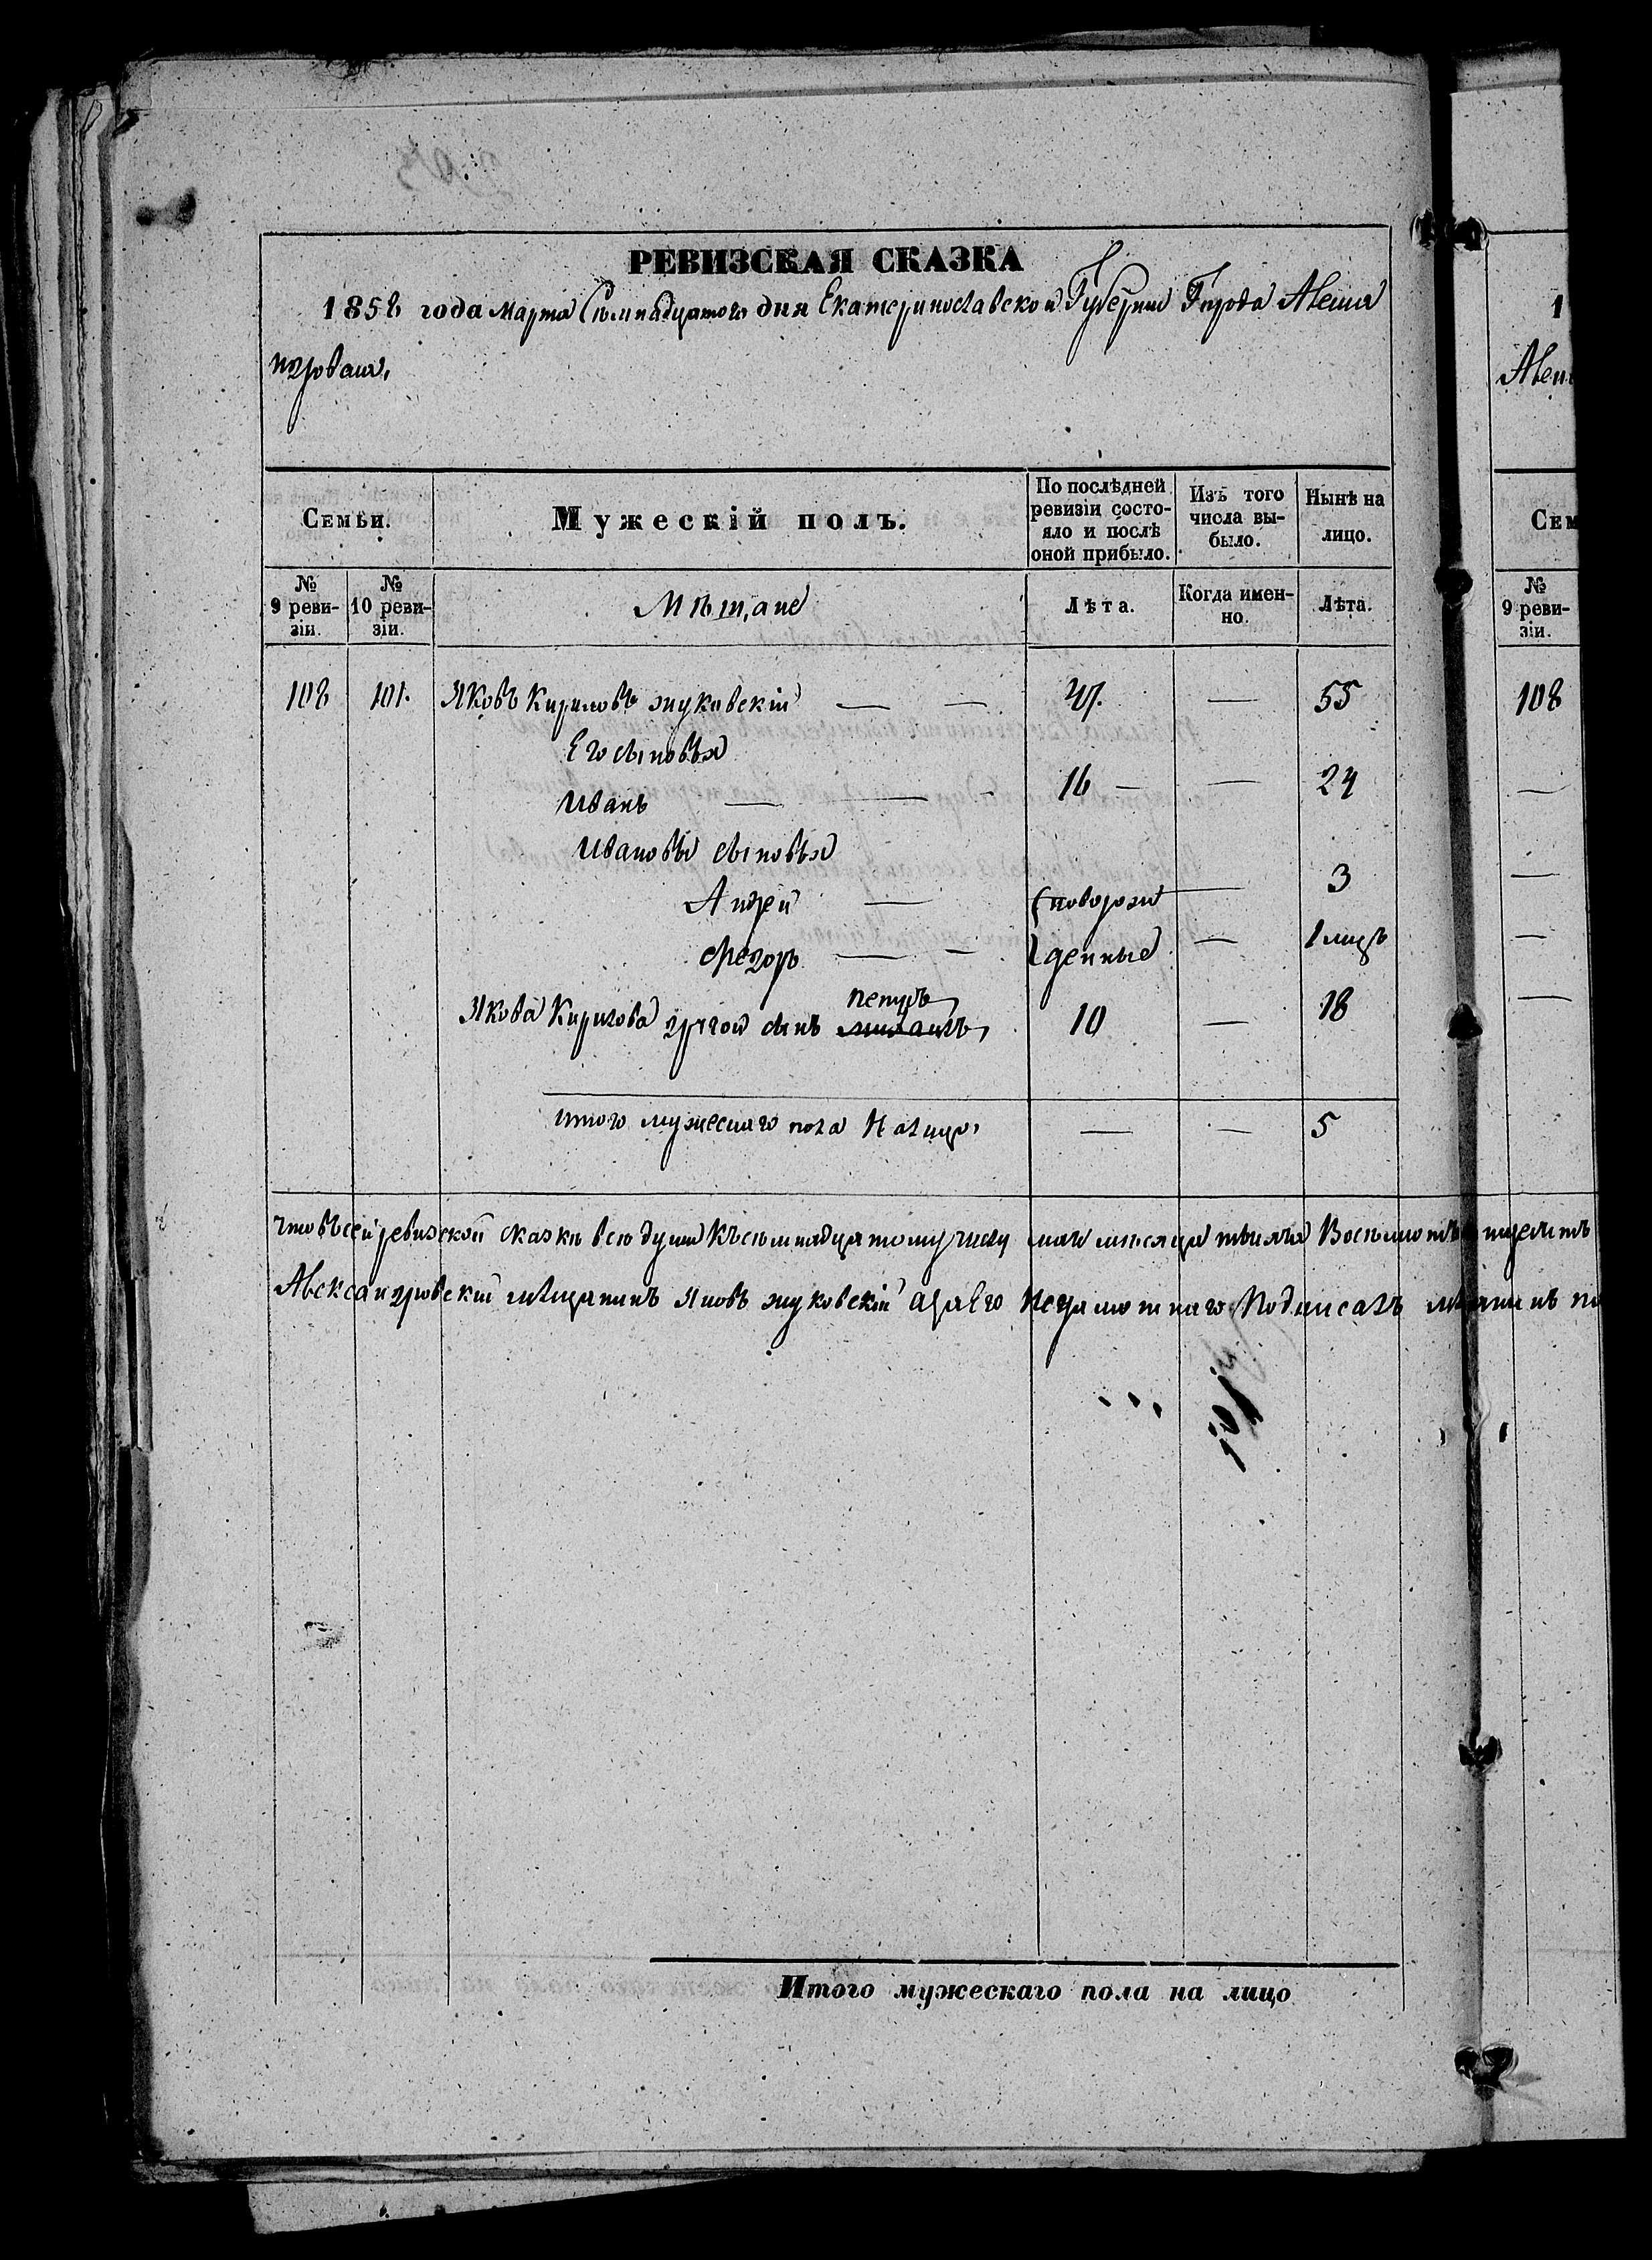 РЕВИЗСКАЯ СКАЗКА
1858 года Марта Семнадцатого дня Екатеринославской Губернии Города Алекса
ндровска,
1
Алек
СЕМЬИ.
Мужескій полъ.
По послѣдней ревизіи состо-
яло и послѣ оной прибыло.
Изъ того числа вы-
было.
Нынѣ на лицо.
СЕМ
№ 9 реви-
зіи.
№ 10 реви-
зіи.
Мѣщане
Лѣта.
Когда имен-
но.
Лѣта.
№ 9 реви-
зіи.
108 101. Яковъ Кириловъ Жуковскій — — 47. — 55 108
Его сыновья
Иванъ — — - 16 — — 24 —
Ивановы сыновья
Андрей — (новорож — 3 —
Федоръ — - денные — 1 мцъ —
Якова Кирилова другой сынъ Петръ, 10 — 18 —
Михаилъ,
Итого мужескаго пола на лицо, — — 5
Что въ сей ревизской сказке все души къ семнадцатому числу мая месяца тысяча Восемьсотъ
Александровскій мѣщанинъ Яковъ Жуковскій а за его неграмотнаго Подписалъ
Итого мужескаго пола на лицо